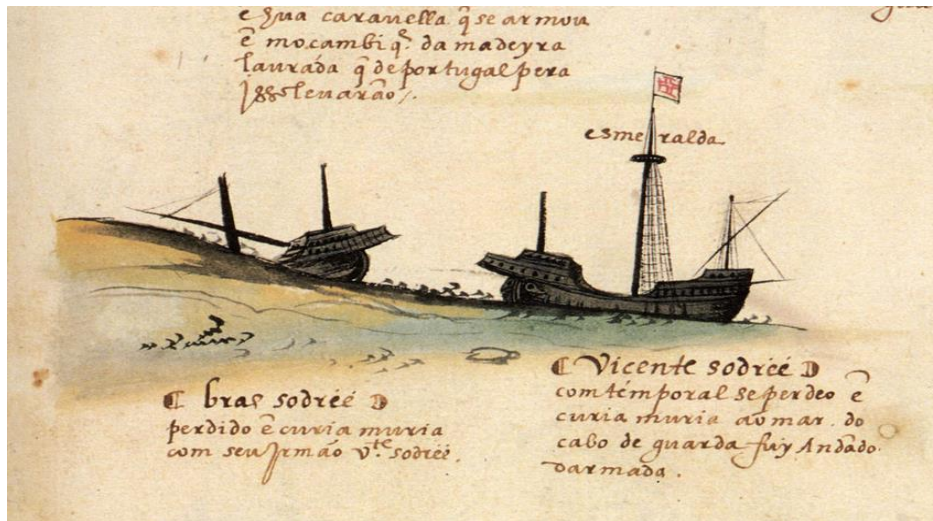 e sua caravella q̃ se armou
ẽ mocambiq̃ da madeyra
laurada q̃ de portugal pera
Isso levarão /.
esmeralda
bras sodreé
perdido ẽ curia muria
com seu Irmão v.te sodreé.
Vicente sodreé
com temporal se perdeo ẽ
curia muria ao mar do
cabo de guarda fuy Andãdo
darmada.